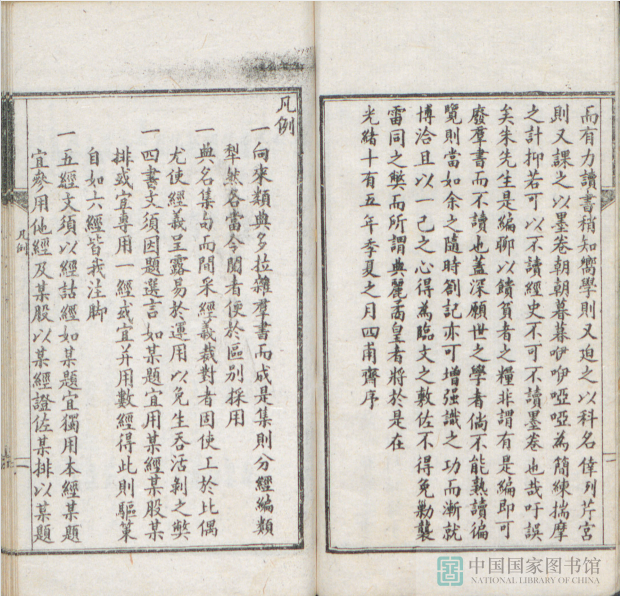 而有力讀書稍知嚮學則又迫之以科名倖列芹宮
則又課之以墨卷朝朝暮暮咿咿啞啞為簡練揣摩
之計抑若可以不讀經史不可不讀墨卷也哉吁誤
矣朱先生是編聊以饋貧者之糧非謂有是編即可
廢羣書而不讀也蓋深願世之學者倘不能熟讀徧
覽則當如余之隨時劄記亦可增强識之功而漸就
博洽且以一己之心得為臨文之敷佐不得免勦襲
雷同之獘而所謂典麗矞皇者將於是在
光緒十有五年季夏之月四甫齊序
凡例
一向來類典多拉雜羣書而成是集則分經編類
犁然各當令閱者便於區別採用
一典名集句而間采經義裁對者固使工於比偶
尤使經義呈露易於運用以免生吞活剝之獘
一四書文須因題選言如某題宜用某經某股某
排或宜專用一經或宜并用數經得此則驅策
自如六經皆我注脚
一五經文須以經詁經如某題宜獨用本經某題
宜參用他經及某股以某經證佐某排以某題
凡例
一
中国国家图书馆
NATIONAL LIBRARY OF CHINA